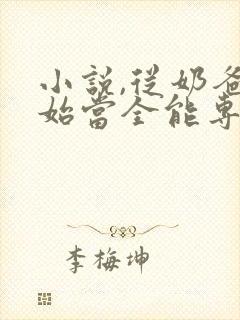 小說,從奶爸
始當全能專
李梅坤